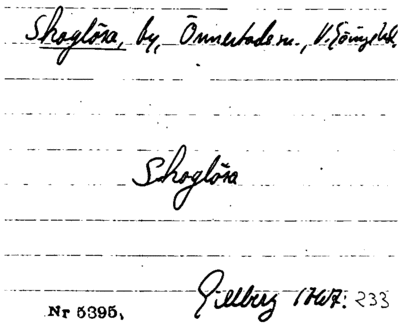 Skoglösa, by, Önnestads sn., V. Göinge hd.
Skoglösa
Gillberg 1767: 233
Nr 5395,